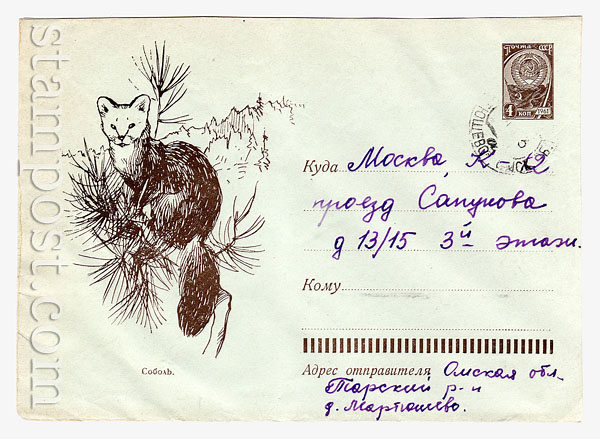 stampost.com
Почта СССР
4 коп
1961
Куда Москва, К-12
проезд Сапунова
д 13/15 3й этаж.
Кому
Соболь.
Адрес отправителя Омская обл
Тарский р-н
д. Мартюшево.